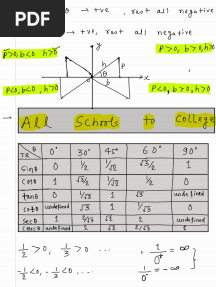 PDF
θ → +ve, rest all negative
→ +ve, rest all negative
y
P>0, b<0 h>0
P>0, b>0, h>0
h
P
θ
b
x
P<0, b<0, h>0
P<0, b>0, h>0
→ All Schools to College
θ
TR 0° 30° 45° 60° 90°
Sinθ 0 1/2 1/√2 √3/2 1
Cosθ 1 √3/2 1/√2 1/2 0
tanθ 0 1/√3 1 √3 undefined
cotθ undefined √3 1 1/√3 0
Secθ 1 2/√3 √2 2 undefined
Cosecθ undefined 2 √2 2/√3 1
1/2 > 0, 1/3 > 0 ... , 1/0⁺ = ∞
-1/2 < 0, -1/3 < 0 ... 1/0⁻ = -∞